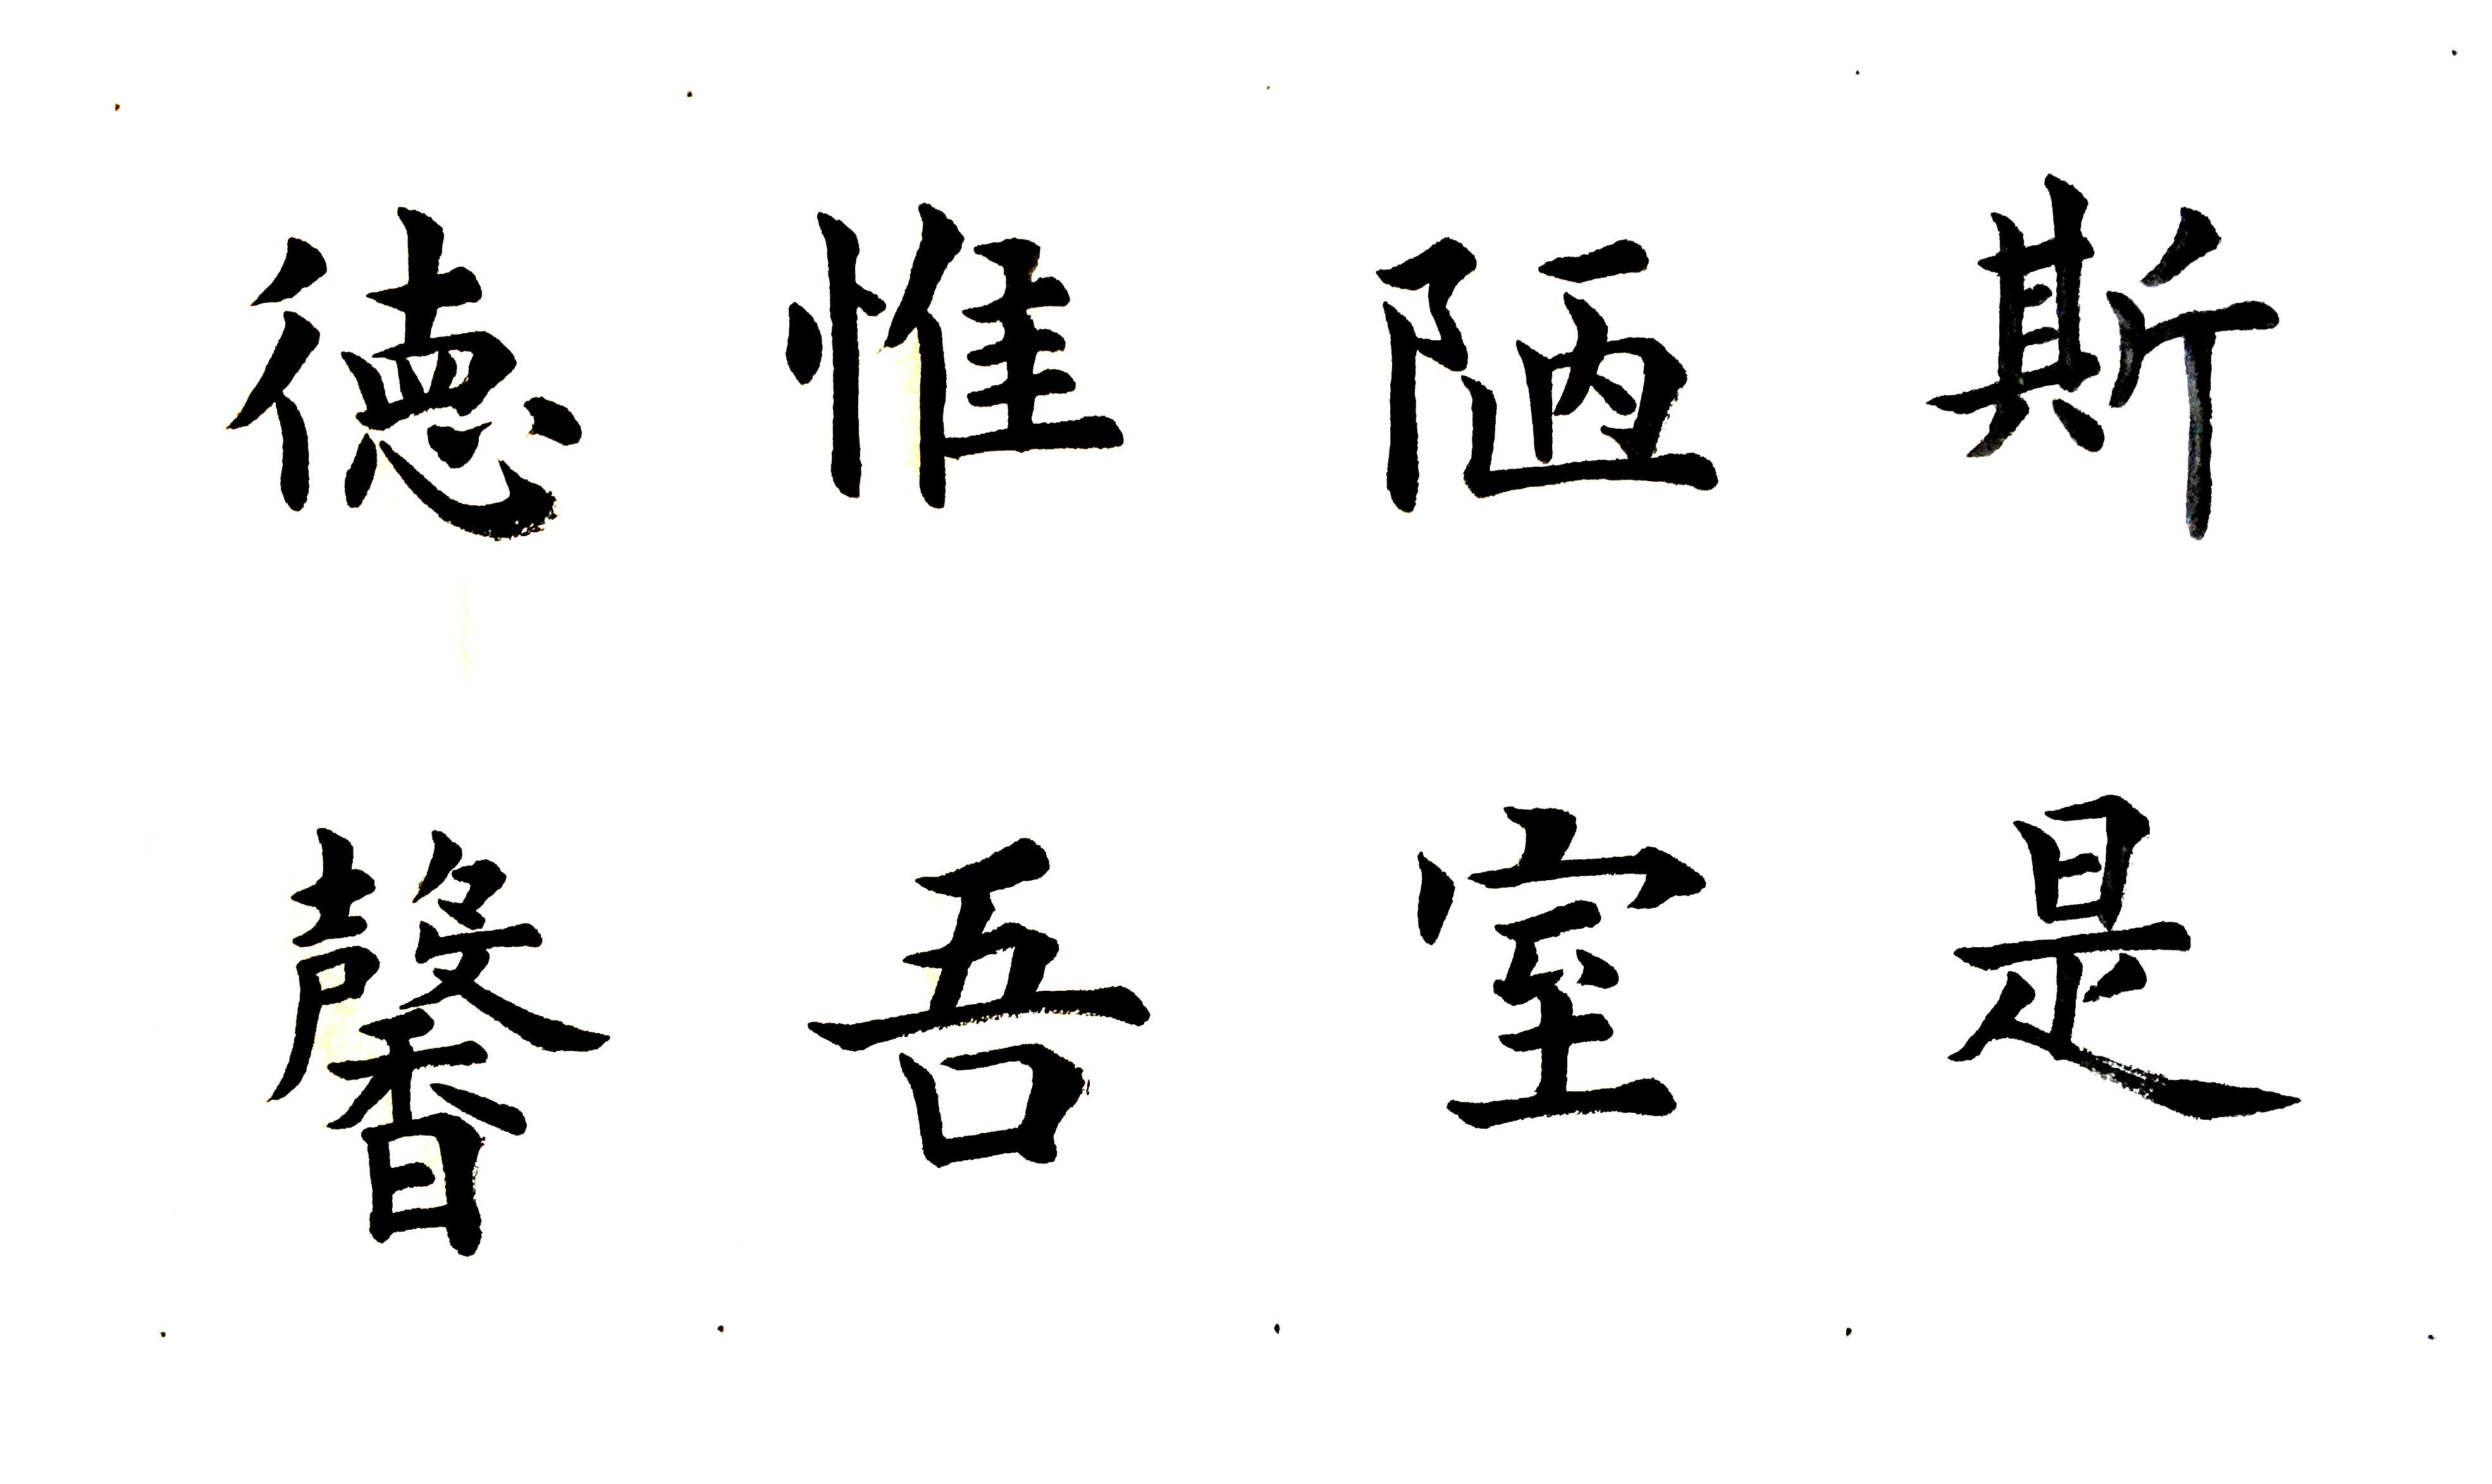 斯是
陋室
惟吾
德馨